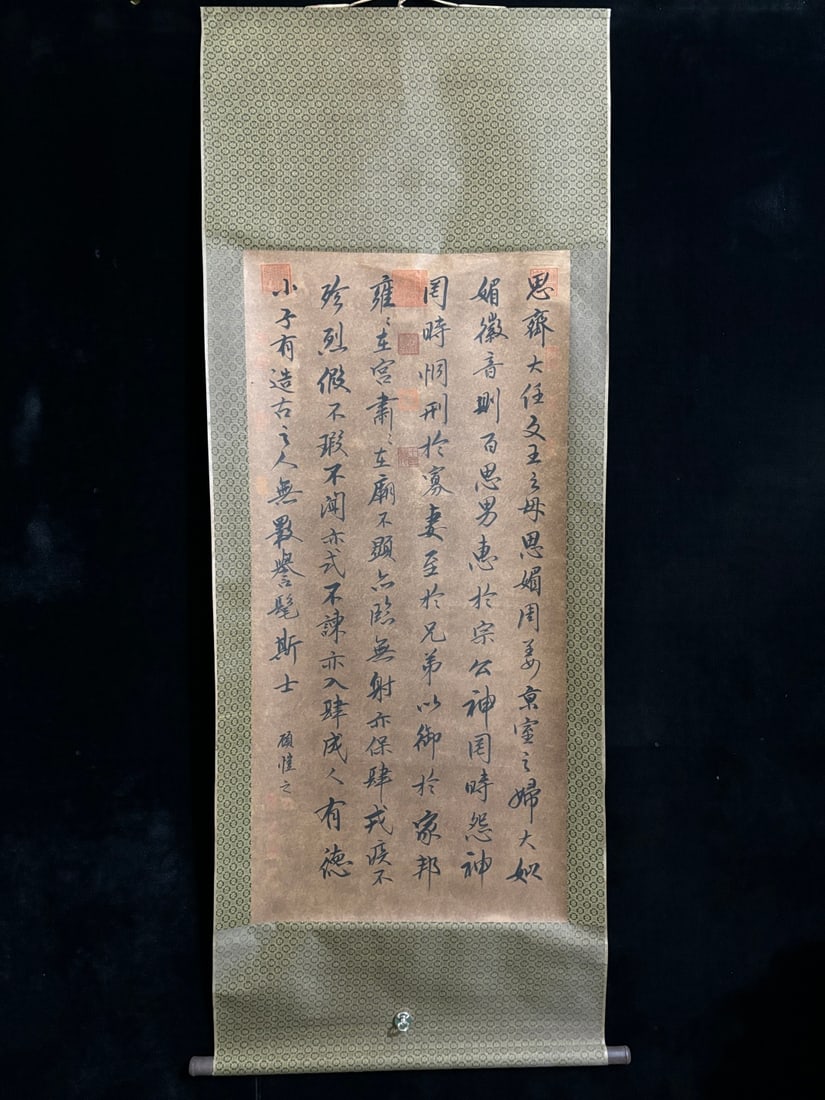 思齊大任文王之母思媚周姜京室之婦大姒
媚徽音則百思男惠於宗公神罔時怨神
罔時恫刑於寡妻至於兄弟以御於家邦
雍〻在宮肅〻在廟不顯亦臨無射亦保肆戎疾不
殄烈假不瑕不聞亦式不諫亦入肆成人有德
小子有造古之人無斁譽髦斯士
顧愷之